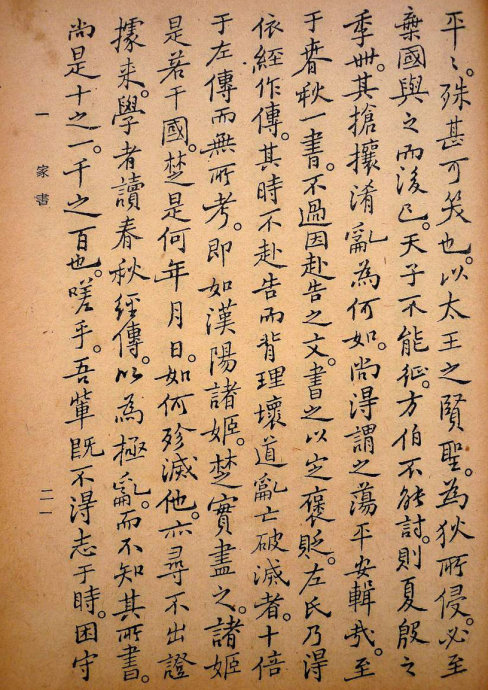 平〻。殊甚可笑也。以太王之賢聖。為狄所侵。必至
棄國與之而後已。天子不能征。方伯不能討。則夏殷之
季世。其搶攘淆亂為何如。尚得謂之蕩平安輯哉。至
于春秋一書。不過因赴告之文。書之以定褒貶。左氏乃得
依經作傳。其時不赴告而背理壞道亂亡破滅者。十倍
于左傳而無所考。即如漢陽諸姬。楚實盡之。諸姬
是若干國。楚是何年月日。如何殄滅他。亦尋不出證
據來。學者讀春秋經傳。以為極亂。而不知其所書。
尚是十之一。千之百也。嗟乎。吾輩既不得志于時。困守
一 家書 二一